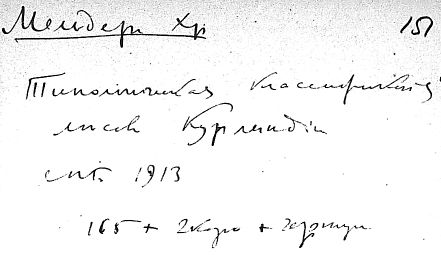 Мендер Хр 151
Типологическая классификація
лесов Курляндіи
спб. 1913
165 + 2 карт + чертеж.